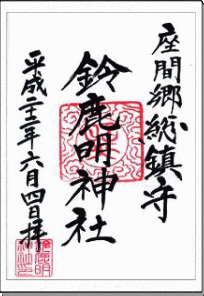 座間郷総鎮守
鈴鹿明神社
平成二十三年六月四日拝
鈴鹿明神社